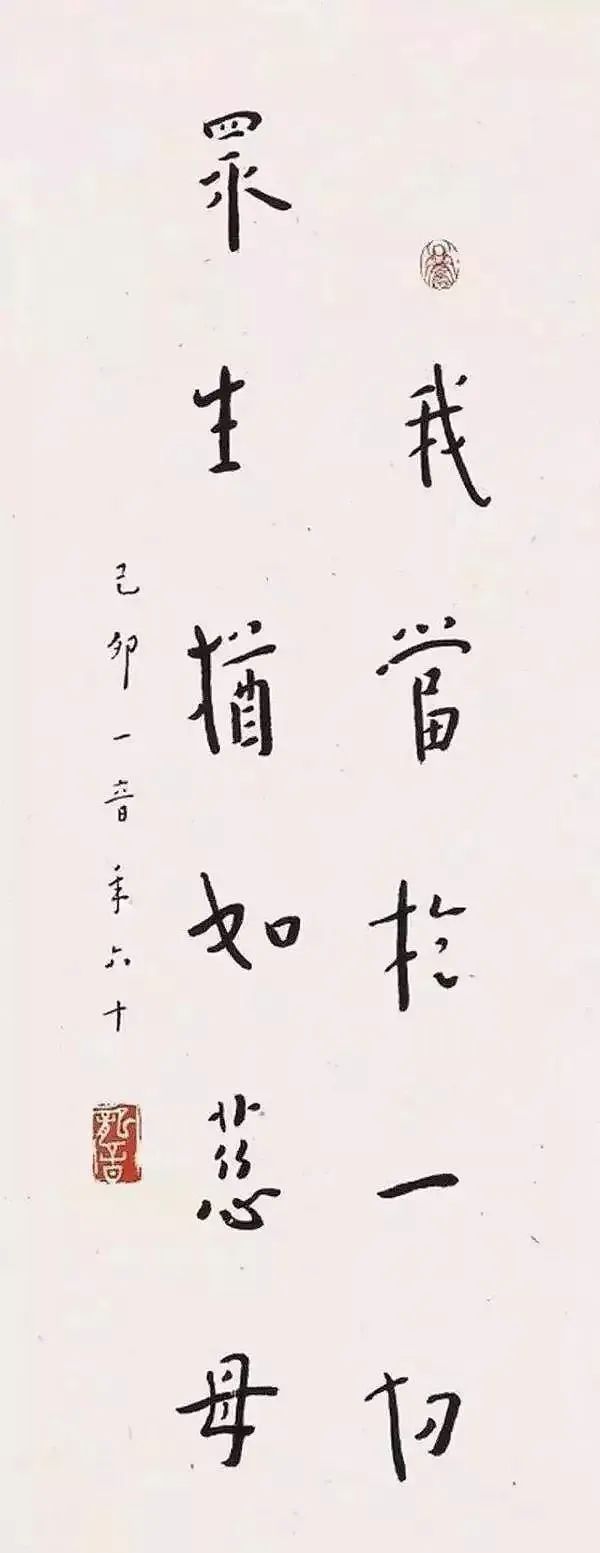 我當於一切
眾生猶如慈母
己卯一音年六十